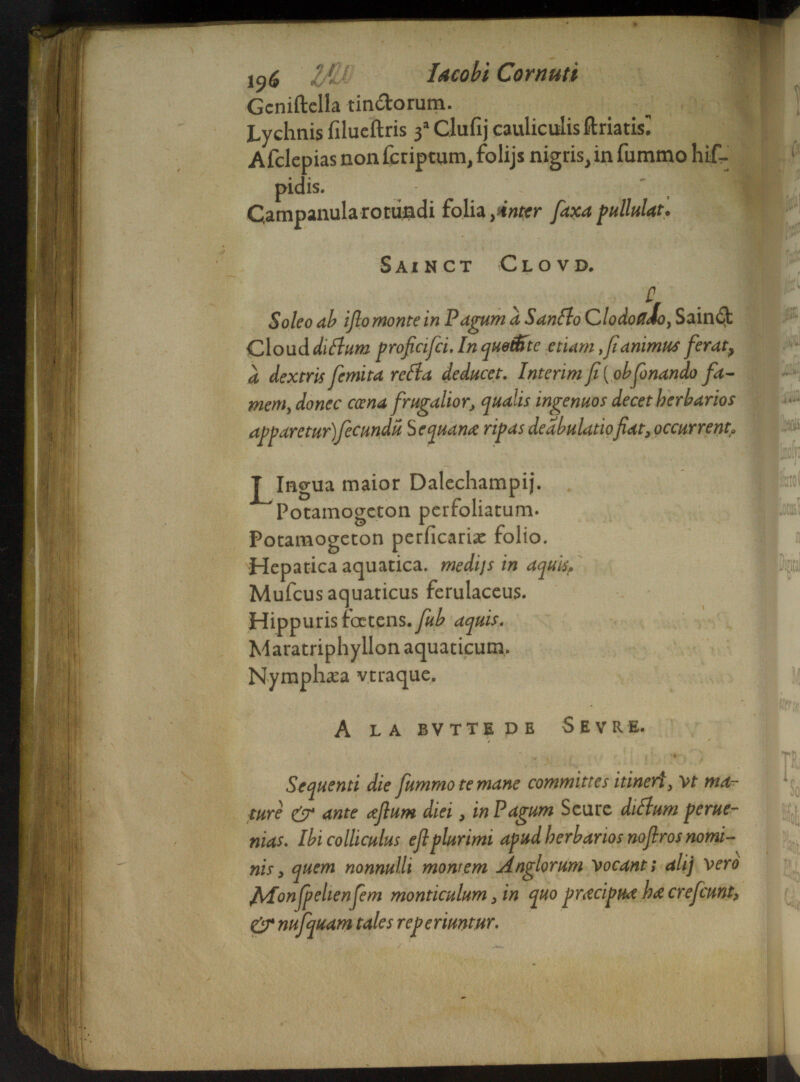 196 Iacobi Cornuti
Geniſtella tinctorum.
Lychnis ſilueſtris 3ª Cluſij cauliculis ſtriatis.
Aſclepias non ſcriptum, folijs nigris, in ſummo hiſ-
pidis.
Campanula rotundi folia, inter ſaxa pullulat.
SAINCT CLOVD.
Soleo ab iſto monte in Pagum à Sancto Clodoaldo, Sainct
Cloud dictum proficiſci. In quem te etiam, ſi animus ferat,
à dextris ſemita recta deducet. Interim ſi (obſonando fa-
mem, donec cœna frugalior, qualis ingenuos decet herbarios
apparetur) ſecundũ Sequanæ ripas deabulatio fiat, occurrent,
LIngua maior Dalechampij.
Potamogeton perfoliatum.
Potamogeton perſicariæ folio.
Hepatica aquatica. medijs in aquis.
Muſcus aquaticus ferulaceus.
Hippuris fœtens. ſub aquis.
Maratriphyllon aquaticum.
Nymphæa vtraque.
A LA BVTTE DE SEVRE.
Sequenti die ſummo te mane committes itineri, vt ma-
turè & ante æſtum diei, in Pagum Seure dictum perue-
nias. Ibi colliculus eſt plurimi apud herbarios noſtros nomi-
nis, quem nonnulli montem Anglorum vocant; alij verò
Monſpelienſem monticulum, in quo præcipuæ hæ creſcunt,
& nuſquam tales reperiuntur.